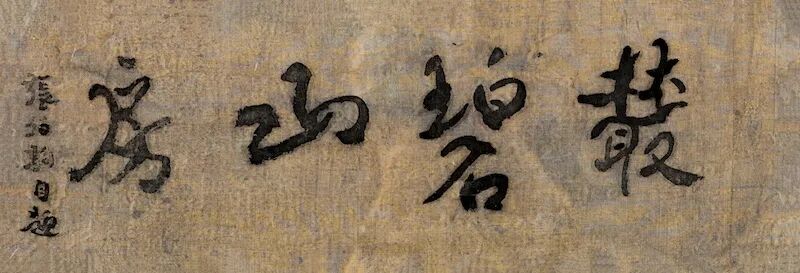 叢碧山房
張伯駒自題